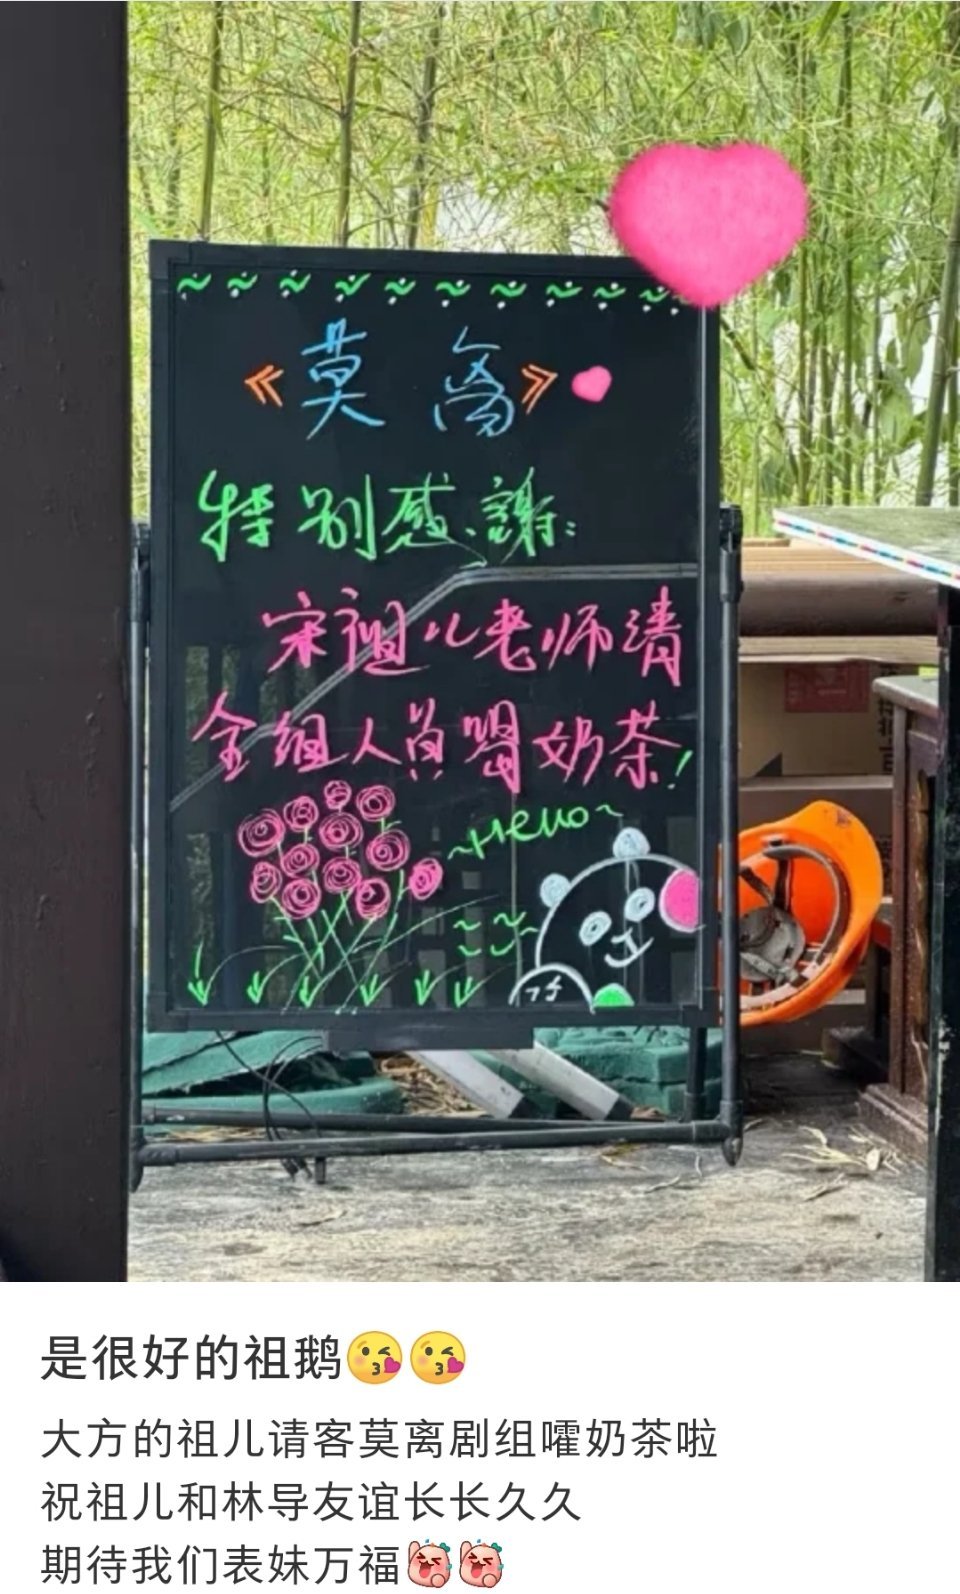 《莫离》
特别感謝:
宋祖儿老师请
全组人员喝奶茶!
~Hello~
是很好的祖鹅😘😘
大方的祖儿请客莫离剧组嚯奶茶啦
祝祖儿和林导友谊长长久久
期待我们表妹万福